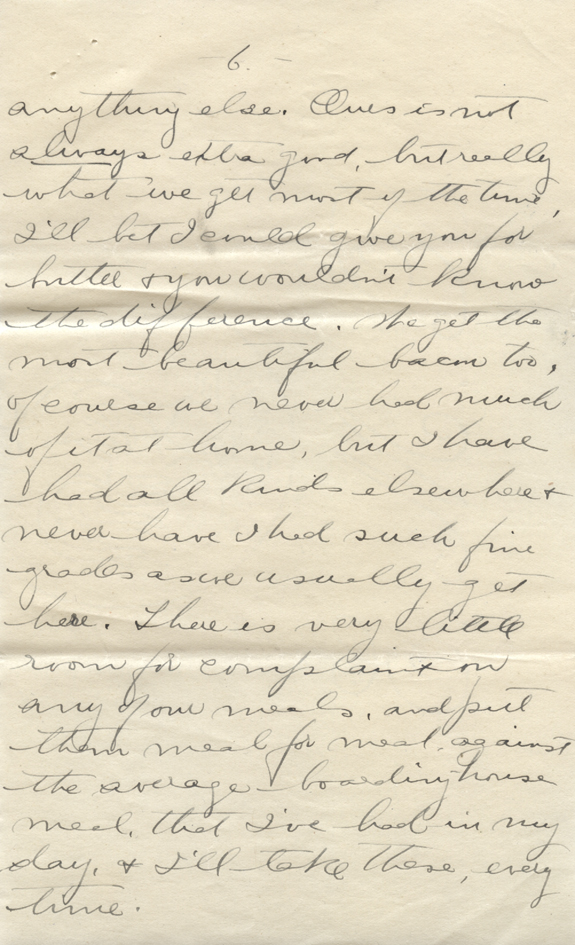 6.
anything else. Ours is not
always extra good, but really
what we get most of the time,
I'll bet I could give you for
butter & you wouldn't know
the difference. We get the
most beautiful bacon too,
of course we never had much
of it at home, but I have
had all kinds elsewhere &
never have I had such fine
grades as we usually get
here. There is very little
room for complaint on
any of our meals, and put
them meal for meal, against
the average boarding house
meal, that I've had in my
day, & I'll take these, every
time.